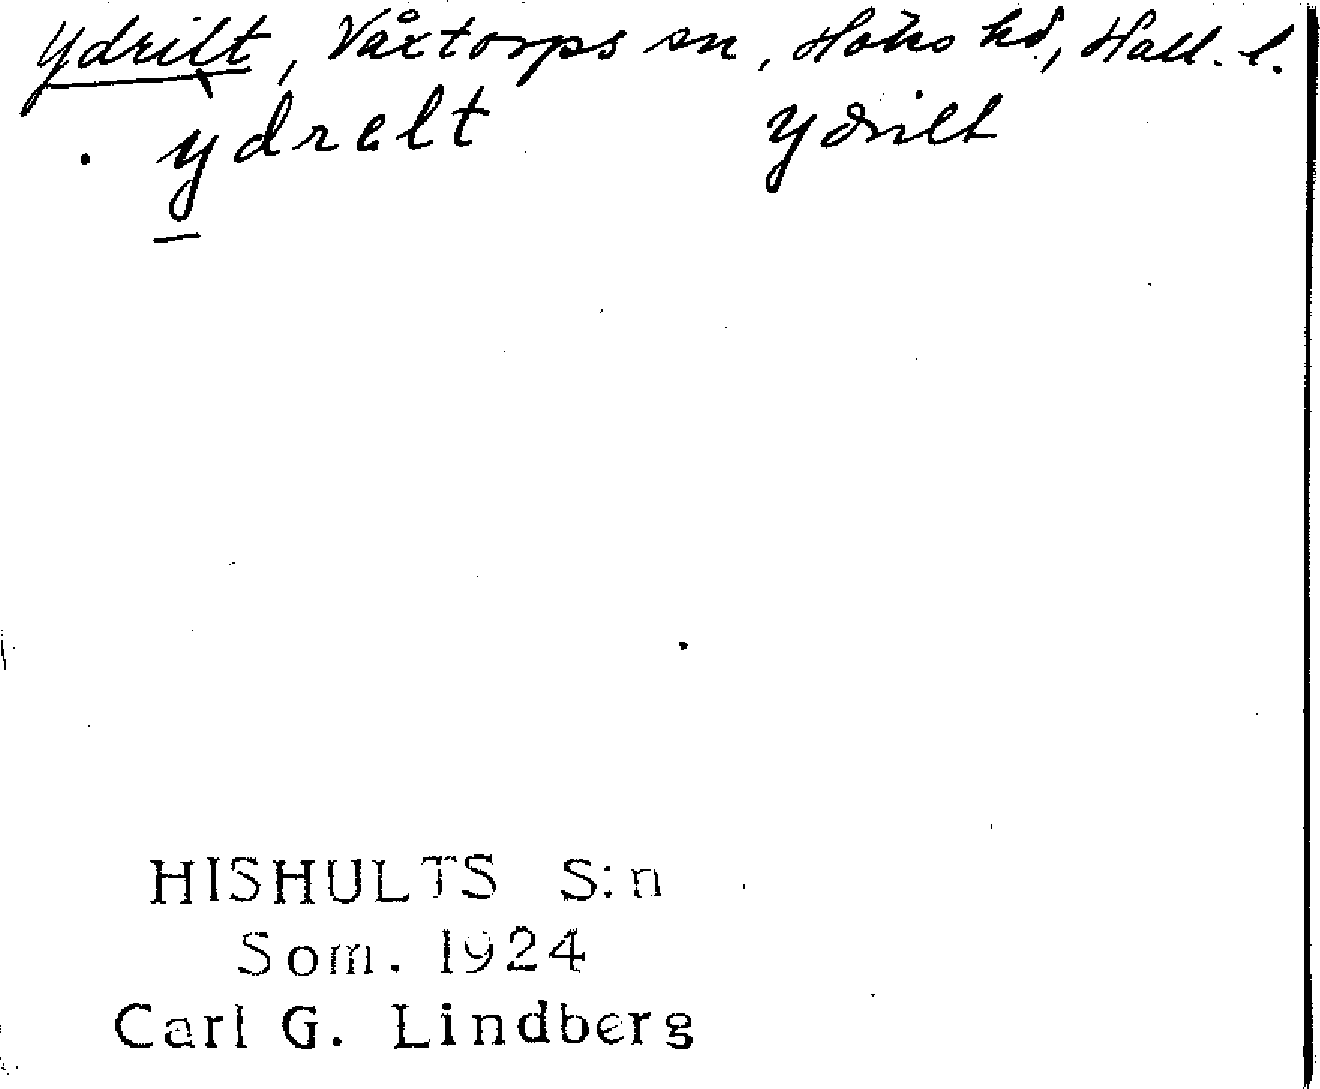 Ydrilt, Våxtorps sn, Höks hd, Hall. l.
. ydrelt ydrilt
HISHULTS S:n
Som. 1924
Carl G. Lindberg